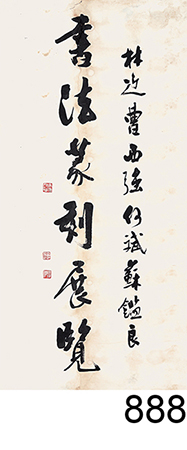 林近曹西强何斌蘇鑑良
書法篆刻展覽
888